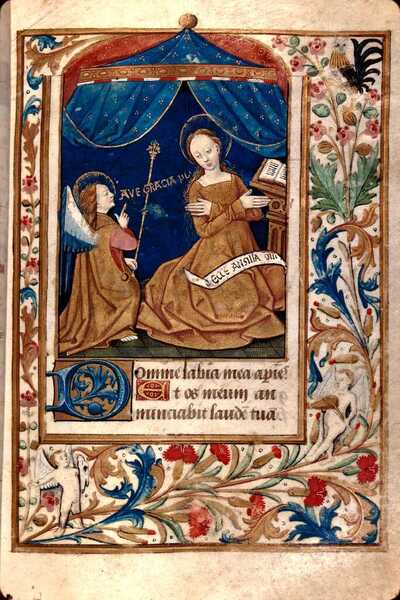 AVE GRACIA PL
ECCE ANSILLA DNI
Domine labia mea apies
Et os meum an
nunciabit laude tua